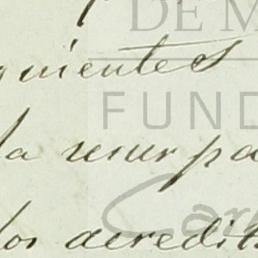 DE M
quientes
FUND
la recurpa
los acredit